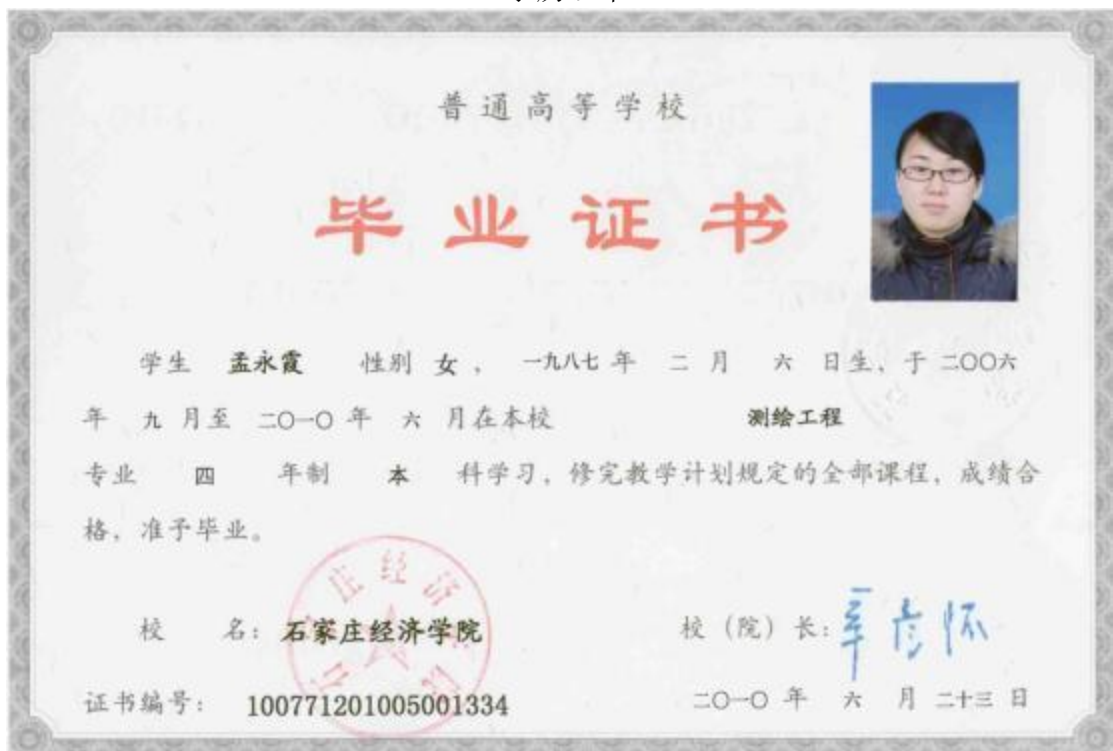 普通高等学校
毕业证书
学生 孟永霞 性别 女 ， 一九八七 年 二 月 六 日生，于 二〇〇六
年 九 月至 二〇一〇 年 六 月在本校 测绘工程
专业 四 年制 本 科学习，修完教学计划规定的全部课程，成绩合
格，准予毕业。
校 名：石家庄经济学院 校（院）长：
证书编号： 100771201005001334 二〇一〇 年 六 月 二十三 日